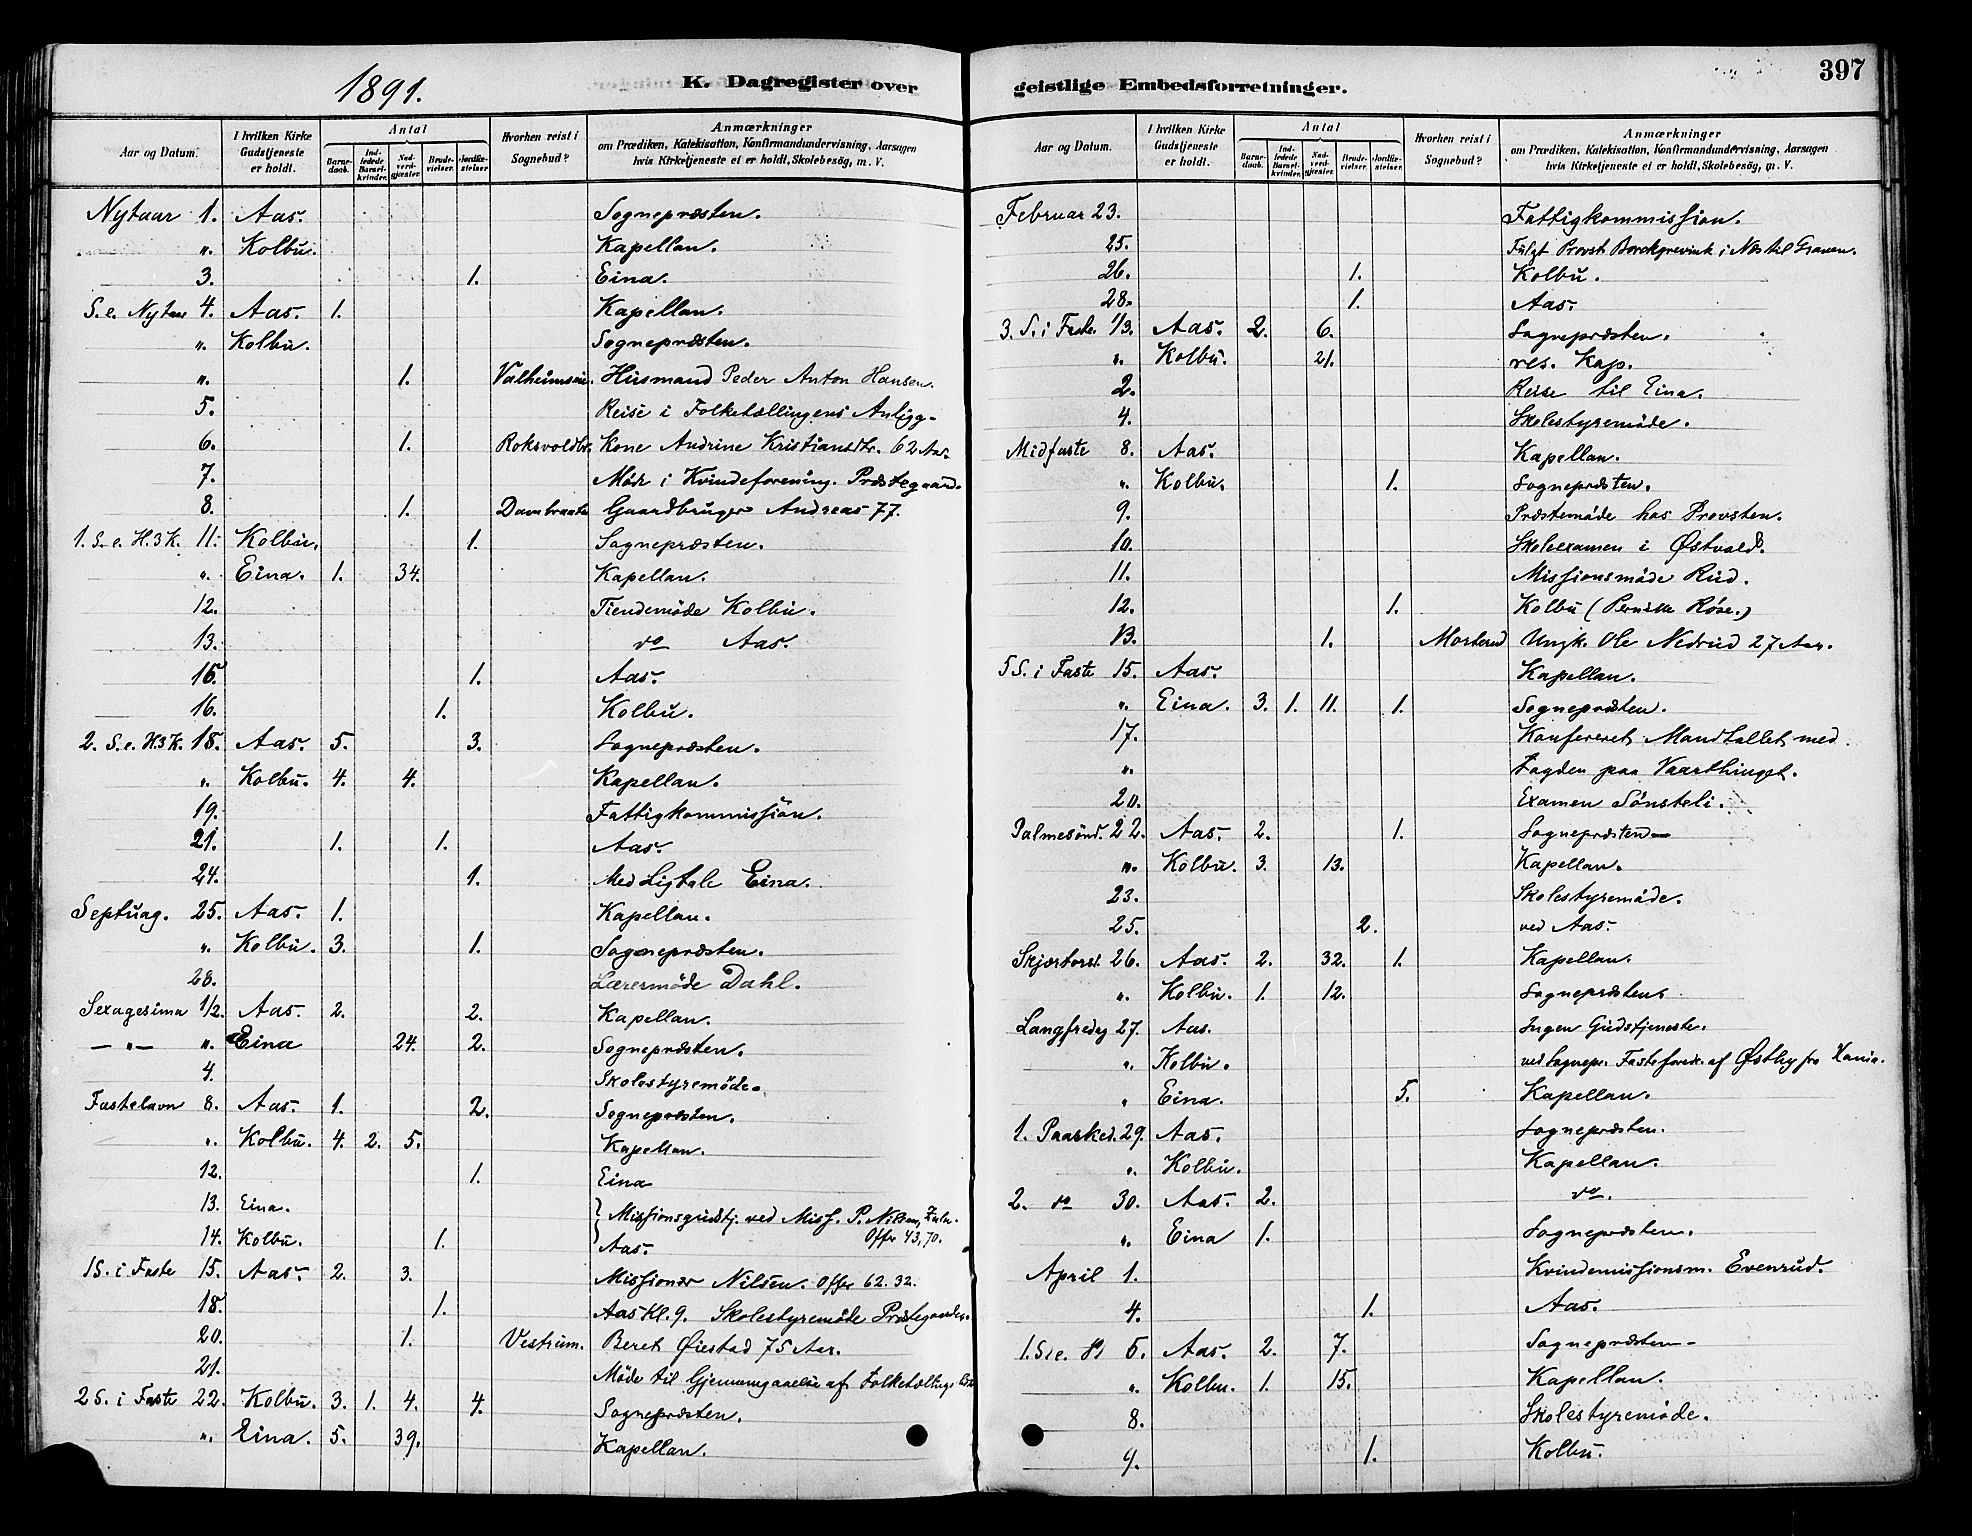 397
1891.
K. Dagregister over
geistlige Embedsforretninger.
Aar og Datum.
I hvilken Kirke Gudstjeneste er holdt.
Antal
Barnedaab.
Indledede Barselkvinder.
Nadverdgjæster.
Brudevielser.
Jordfæstelser.
Hvorhen reist i Sognebud?
Anmærkninger
om Prædiken, Katekisation, Konfirmandundervisning, Aarsagen
hvis Kirketjeneste ei er holdt, Skolebesög, m. V.
Nytaar 1. Aas. Sognepræsten.
". Kolbu. Kapellan.
3. 1. Eina.
S. e. Nytaar 4. Aas. 1. Kapellan.
". Kolbu. Sognepræsten.
". 1. Husmand Peder Anton Hansen.
5. Reise i Folketællingens Anligg.
6. 1. Roksvoldbr. Kone Andrine Kristiansdtr. 62 Aar.
7. Möde i Kvindeforening. Præstegaard.
8. 1. Dambraate Gaardbruger Andreas 77.
1. S. e. H.3K. 11. Kolbu. 1. Sognepræsten.
". Eina. 1. 34. Kapellan.
12. Tiendemöde Kolbu.
13. do Aas.
15. 1. Aas.
16. 1. Kolbu.
2. S. e. H.3K. 18. Aas. 5. 3. Sognepræsten.
". Kolbu. 4. 4. Kapellan.
19. Fattigkommission.
21. 1. 1. Aas.
24. 1. Med Ligtale Eina.
Septuag. 25. Aas. 1. Kapellan.
". Kolbu. 3. 1. Sognepræsten.
28. Lærermöde Dahl.
Sexagesima 1/2. Aas. 2. 2. Kapellan.
— " — ". Eina 24. 2. Sognepræsten.
4. Skolestyremöde.
Fastelavn 8. Aas. 1. 2. Sognepræsten.
". Kolbu. 4. 2. 5. Kapellan.
12. 1. Eina
13. Eina. Missionsgudstj. ved Miss. P. Nilsen, Zulu.
Offer 43,70.
14. Kolbu. 1. Aas.
1 S. i Faste 15. Aas. 2. 3. Missionær Nilsen. Offer 62.32.
18. 1. Aas Kl. 9. Skolestyremöde Præstegaarden.
20. 1. Vestrum. Beret Øiestad 75 Aar.
21. Möde til Gjennemgaaelse af Folketællings
2 S. i Faste 22. Kolbu. 3. 1. 4. 4. Sognepræsten.
". Eina. 5. 39. Kapellan.
Aar og Datum.
I hvilken Kirke Gudstjeneste er holdt.
Antal
Barnedaab.
Indledede Barselkvinder.
Nadverdgjæster.
Brudevielser.
Jordfæstelser.
Hvorhen reist i Sognebud?
Anmærkninger
om Prædiken, Katekisation, Konfirmandundervisning, Aarsagen
hvis Kirketjeneste ei er holdt, Skolebesög, m. V.
Februar 23. Fattigkommission.
25. Fulgt Provst Borchgrevink i Næs til Graven.
26. 1. Kolbu.
28. 1. Aas.
3. S. i Faste. 1/3. Aas. 2. 6. Sognepræsten.
". Kolbu. 21. res. Kap.
2. Reise til Eina.
4. Skolestyremöde.
Midfaste 8. Aas. Kapellan.
". Kolbu. 1. Sognepræsten.
9. Præstemöde hos Provsten.
10. Skoleexamen i Østvold.
11. Missionsmöde Rud.
12. 1. Kolbu (Pernille Røse.)
13. 1. Morterud Ungk. Ole Nedrud 27 Aar.
5 S. i Faste 15. Aas. Kapellan.
". Eina. 3. 1. 11. 1. Sognepræsten.
17. Konfereret Mandtallet med
". Fogden paa Vaarthinget.
20. Examen Sönsteli.
Palmesönd. 22. Aas. 2. 1. Sognepræsten
". Kolbu. 3. 13. Kapellan.
23. Skolestyremöde.
25. 2. ved Aas.
Skjærtorsd. 26. Aas. 2. 32. 1. Kapellan.
". Kolbu. 1. 12. Sognepræsten.
Langfredag 27. Aas. Ingen Gudstjeneste.
". Kolbu. ved Sognepr. Fasteforedr. af Østby fra Xania.
". Eina. 5. Kapellan.
1. Paasked. 29. Aas. Sognepræsten.
". Kolbu. Kapellan.
2. do 30. Aas. 2. do.
". Eina 1. Sognepræsten.
April 1. Kvindemissionsm. Evenrud.
4. 1. Aas.
1. S. e. P. 5. Aas. 2. 7. Sognepræsten
". Kolbu. 1. 15. Kapellan.
8. Skolestyremöde.
9. 1. Kolbu.